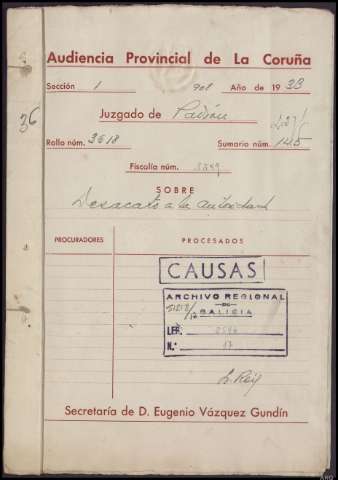 Audiencia Provincial de La Coruña
Sección 1 Año de 1933
36
Juzgado de Padrón
Rollo núm. 3618 Sumario núm. 145
Fiscalía núm.
SOBRE
Desacato a la autoridad
PROCURADORES PROCESADOS
CAUSAS
ARCHIVO REGIONAL
DE
GALICIA
LEG.
N.º 17
Secretaría de D. Eugenio Vázquez Gundín
ARG